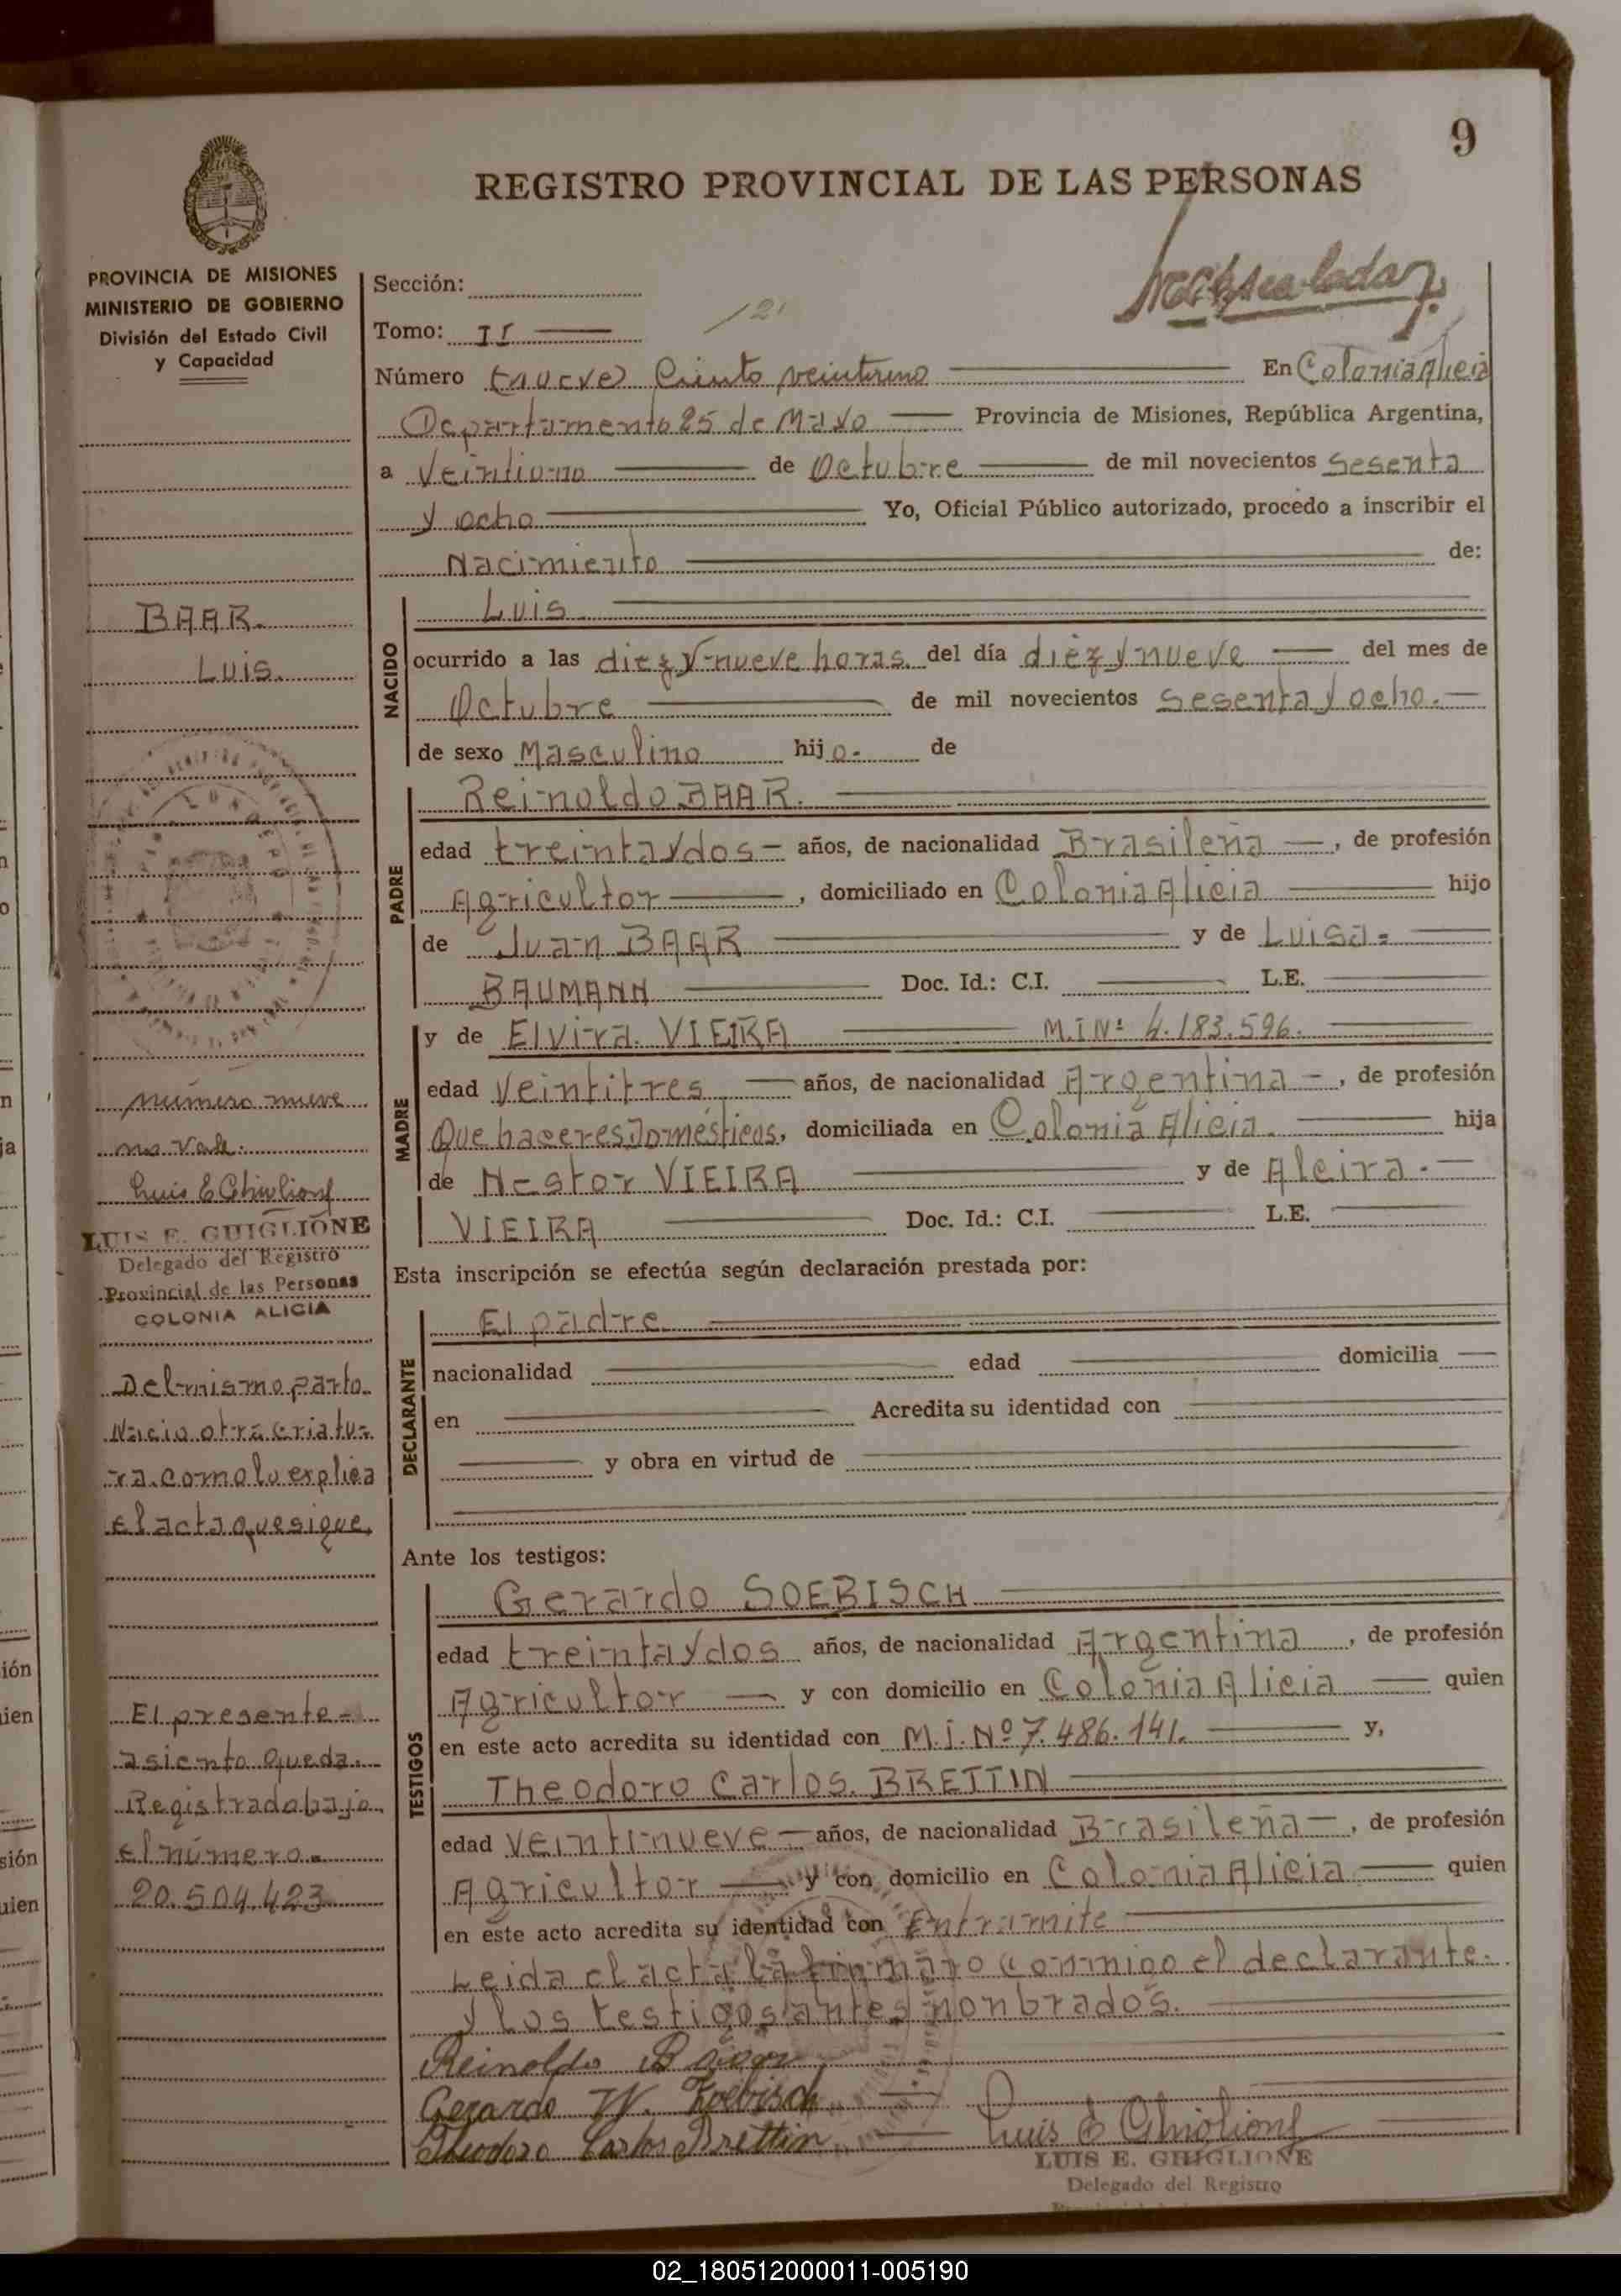 9
REGISTRO PROVINCIAL DE LAS PERSONAS
PROVINCIA DE MISIONES
MINISTERIO DE GOBIERNO
División del Estado Civil
y Capacidad
Sección:
Tomo: II
121
Número (nueve) Ciento veintiuno En Colonia Alicia
Departamento 25 de Mayo Provincia de Misiones, República Argentina,
a Veintiuno de Octubre de mil novecientos Sesenta
y ocho Yo, Oficial Público autorizado, procedo a inscribir el
Nacimiento de:
BAAR.
Luis.
NACIDO
Luis
ocurrido a las diez y nueve horas. del día diez y nueve del mes de
Octubre de mil novecientos Sesenta y ocho.
de sexo Masculino hijo. de
PADRE
Reinoldo BAAR.
edad treinta y dos años, de nacionalidad Brasileña, de profesión
Agricultor, domiciliado en Colonia Alicia hijo
de Juan BAAR y de Luisa
BAUMANN Doc. Id.: C.I. L.E.
MADRE
y de Elvira VIEIRA M.I Nº 4.183.596.
edad Veintitres años, de nacionalidad Argentina, de profesión
Que haceres Domésticos, domiciliada en Colonia Alicia. hija
de Nestor VIEIRA y de Alcira.
VIEIRA Doc. Id.: C.I. L.E.
número nueve
no vale.
Luis E Ghiglione
LUIS E. GHIGLIONE
Delegado del Registro
Provincial de las Personas
COLONIA ALICIA
Esta inscripción se efectúa según declaración prestada por:
DECLARANTE
El padre
nacionalidad edad domicilia
en Acredita su identidad con
y obra en virtud de
Del mismo parto
Nacio otra criatu-
ra. como lo explica
el acta que sigue.
Ante los testigos:
TESTIGOS
Gerardo SOEBISCH
edad treinta y dos años, de nacionalidad Argentina, de profesión
Agricultor y con domicilio en Colonia Alicia quien
en este acto acredita su identidad con M.I. Nº 7.486.141. y,
Theodoro Carlos. BRETTIN
edad Veintinueve años, de nacionalidad Brasileña, de profesión
Agricultor y con domicilio en Colonia Alicia quien
en este acto acredita su identidad con En tramite
El presente
asiento queda.
Registrado bajo
el número.
20.504.423
Leida el acta la firmaro conmigo el declarante.
y los testigos antes nonbrados.
Reinoldo
Gerardo W.
Theodoro Carlos Brettin
Luis E Ghiglione
LUIS E. GHIGLIONE
Delegado del Registro
02_180512000011-005190